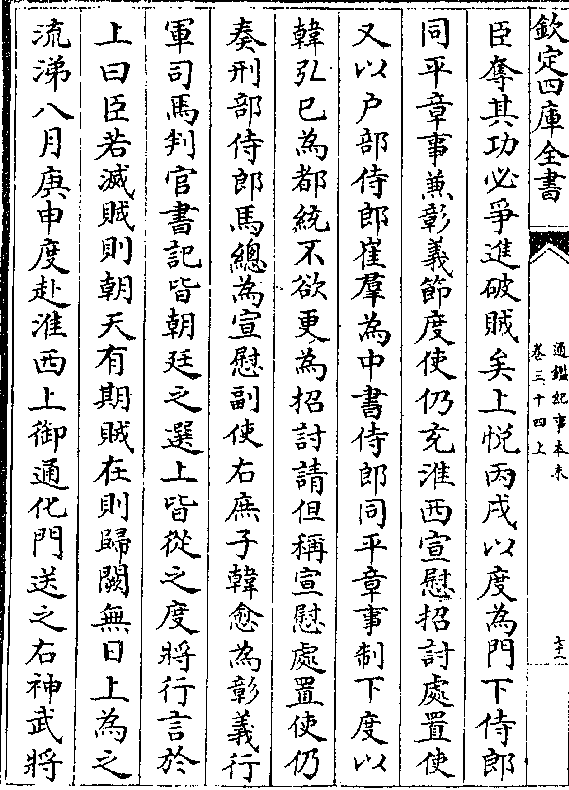 欽定四庫全書
通鑑紀事本末
卷三十四上
臣奪其功必爭進破賊矣上悅丙戌以度為門下侍郎
同平章事兼彰義節度使仍充淮西宣慰招討處置使
又以户部侍郎崔羣為中書侍郎同平章事制下度以
韓弘已為都統不欲更為招討請但稱宣慰處置使仍
奏刑部侍郎馬總為宣慰副使右庶子韓愈為彰義行
軍司馬判官書記皆朝廷之選上皆從之度將行言於
上曰臣若滅賊則朝天有期賊在則歸闕無日上為之
流涕八月庚申度赴淮西上御通化門送之右神武將